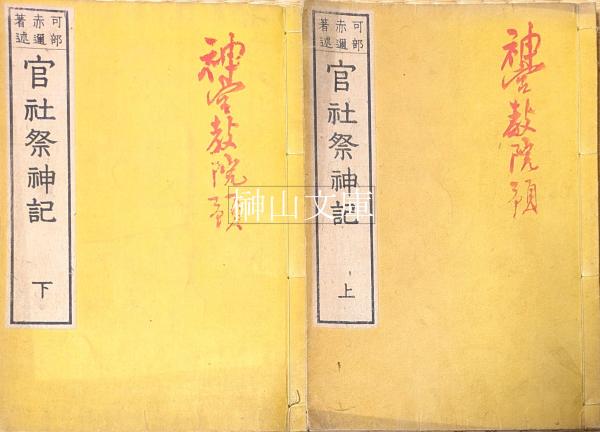 可部
赤邇
著述
官社祭神記
上
神宮教院預
可部
赤邇
著述
官社祭神記
下
神宮教院預
榊山文庫